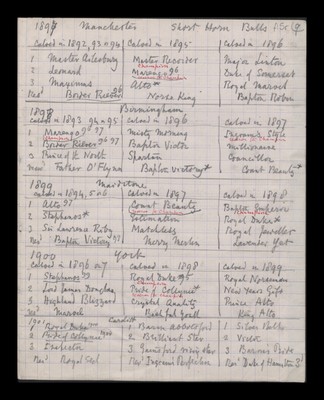 1897 Manchester Short Horn Bulls
Calved in 1892, 93 or 94 Calved in 1895 Calved in 1896
1 Master Recorder Major Linton
2 Leonard Marengo 96 Duke of Somerset
3 Maximus Alto Royal Marvel
Res Border Reiver 96 Norse King Bapton Robin
1898 Birmingham
Calved in 1893, 94 or 95 Calved in 1896 Calved in 1897
1 Marengo 96 97 Misty Morning Ingram's Style
2 Border Reiver 96 97 Bapton Victor Millionaire
3 Prince of the North Spartan Councillor
Father O'Flynn Bapton Victory Count Beauty
1899 Maidstone
Calved in 1894, 5 or 6 Calved in 1897 Calved in 1898
1 Alto 97 Count Beauty Bapton Emperor
2 Stephanos Estimation Royal Duke
3 Sir Lawrence Riby Matchless Royal Jeweller
Res Bapton Victory 97 Merry Merlin Lavender
1900 York
Calved in 1896 or 7 Calved in 1898 Calved in 1899
1 Stephanos 99 Royal Duke 99 Royal Norseman
2 Lord James Douglas Pride of Collynie New Year's Gift
3 Highland Blizzard Crystal Quality Prince Alto
Faithful King Alto
Cardiff
1 Royal Duke 1 Baron Abbotsford 1 Silver Bells
2 Pride of Collynie 1900 2 Brilliant Star 2 Victor
3 Inspector 3
Res Royal Res Ingram's Perfection Res Duke of Hamilton 3